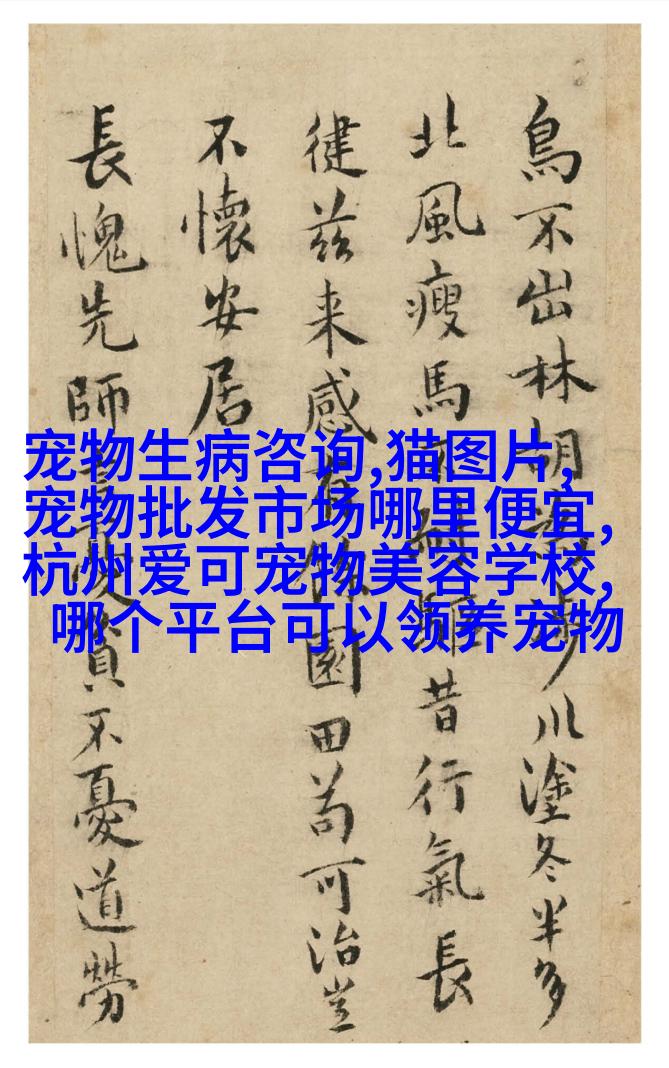 鳥不出林胡川塗冬半多
北風瘦馬昔行氣長
徤茲来感園田苟可治豈
不懷安居
長愧先師貧不憂道勞
宠物生病咨询,猫图片,
宠物批发市场哪里便宜,
杭州爱可宠物美容学校,
哪个平台可以领养宠物